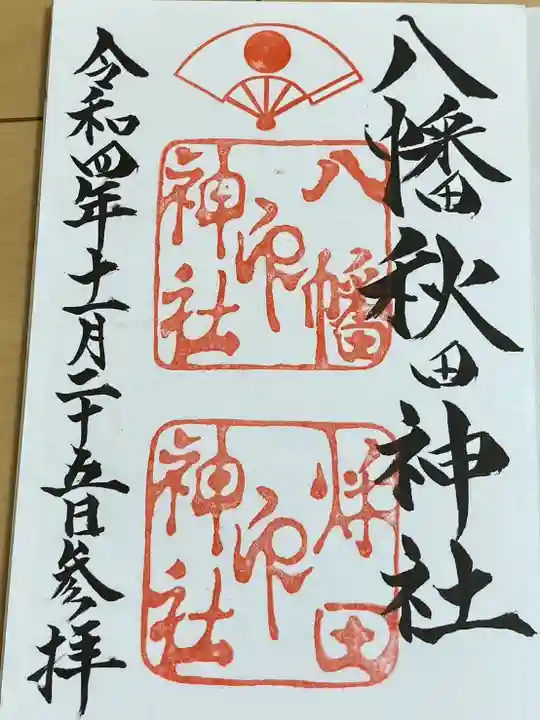 八幡秋田神社
八幡
印
神社
秋田
印
神社
令和四年十一月二十五日参拝